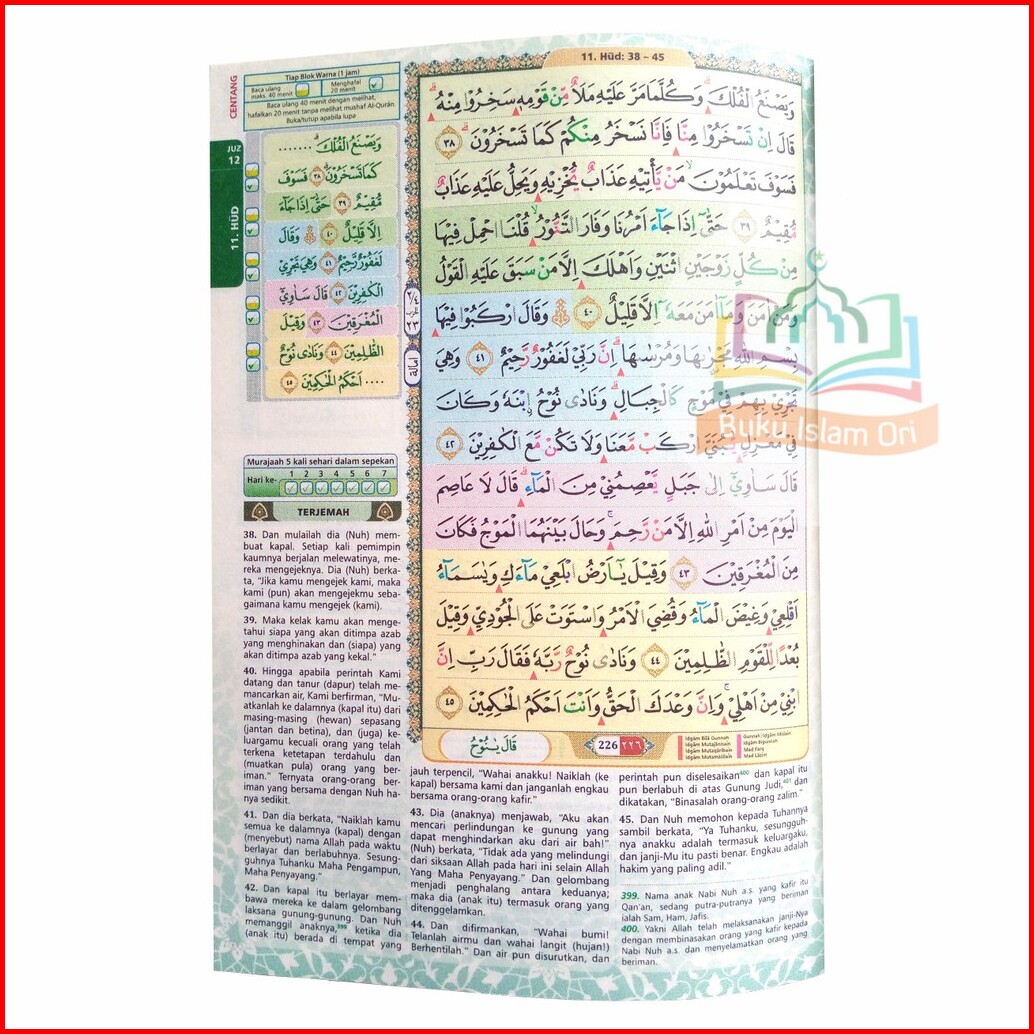 11. Hūd: 38 – 45
CENTANG
Tiap Blok Warna (1 jam)
Baca ulang maks. 40 menit
Menghafal 20 menit
Baca ulang 40 menit dengan melihat,
hafalkan 20 menit tanpa melihat mushaf Al-Qurán.
Buka/tutup apabila lupa
JUZ
12
11. HŪD
وَيَصْنَعُ الْفُلْكَۗ .......
كَمَا تَسْخَرُوْنَۗ ٣٨ فَسَوْفَ
مُّقِيْمٌ ٣٩ حَتّٰىٓ اِذَا جَاۤءَ
اِلَّا قَلِيْلٌ ٤٠ ۞ وَقَالَ
لَغَفُوْرٌ رَّحِيْمٌ ٤١ وَهِيَ تَجْرِيْ
الْكٰفِرِيْنَ ٤٢ قَالَ سَاٰوِيْٓ
الْمُغْرَقِيْنَ ٤٣ وَقِيْلَ
الظّٰلِمِيْنَ ٤٤ وَنَادٰى نُوْحٌ
.... اَحْكَمُ الْحٰكِمِيْنَ ٤٥
وَيَصْنَعُ الْفُلْكَۗ وَكُلَّمَا مَرَّ عَلَيْهِ مَلَاٌ مِّنْ قَوْمِهٖ سَخِرُوْا مِنْهُۗ
قَالَ اِنْ تَسْخَرُوْا مِنَّا فَاِنَّا نَسْخَرُ مِنْكُمْ كَمَا تَسْخَرُوْنَۗ ٣٨
فَسَوْفَ تَعْلَمُوْنَۙ مَنْ يَّأْتِيْهِ عَذَابٌ يُّخْزِيْهِ وَيَحِلُّ عَلَيْهِ عَذَابٌ
مُّقِيْمٌ ٣٩ حَتّٰىٓ اِذَا جَاۤءَ اَمْرُنَا وَفَارَ التَّنُّوْرُۙ قُلْنَا احْمِلْ فِيْهَا
مِنْ كُلٍّ زَوْجَيْنِ اثْنَيْنِ وَاَهْلَكَ اِلَّا مَنْ سَبَقَ عَلَيْهِ الْقَوْلُ
وَمَنْ اٰمَنَ ۗوَمَآ اٰمَنَ مَعَهٗٓ اِلَّا قَلِيْلٌ ٤٠ ۞ وَقَالَ ارْكَبُوْا فِيْهَا
بِسْمِ اللّٰهِ مَجْرٰ۪ىهَا وَمُرْسٰىهَا ۗاِنَّ رَبِّيْ لَغَفُوْرٌ رَّحِيْمٌ ٤١ وَهِيَ
تَجْرِيْ بِهِمْ فِيْ مَوْجٍ كَالْجِبَالِۗ وَنَادٰى نُوْحُ ِۨابْنَهٗ وَكَانَ
فِيْ مَعْزِلٍ يّٰبُنَيَّ ارْكَبْ مَّعَنَا وَلَا تَكُنْ مَّعَ الْكٰفِرِيْنَ ٤٢
قَالَ سَاٰوِيْٓ اِلٰى جَبَلٍ يَّعْصِمُنِيْ مِنَ الْمَاۤءِۗ قَالَ لَا عَاصِمَ
الْيَوْمَ مِنْ اَمْرِ اللّٰهِ اِلَّا مَنْ رَّحِمَۚ وَحَالَ بَيْنَهُمَا الْمَوْجُ فَكَانَ
مِنَ الْمُغْرَقِيْنَ ٤٣ وَقِيْلَ يٰٓاَرْضُ ابْلَعِيْ مَاۤءَكِ وَيٰسَمَاۤءُ
اَقْلِعِيْ وَغِيْضَ الْمَاۤءُ وَقُضِيَ الْاَمْرُ وَاسْتَوَتْ عَلَى الْجُوْدِيِّ وَقِيْلَ
بُعْدًا لِّلْقَوْمِ الظّٰلِمِيْنَ ٤٤ وَنَادٰى نُوْحٌ رَّبَّهٗ فَقَالَ رَبِّ اِنَّ
ابْنِيْ مِنْ اَهْلِيْۚ وَاِنَّ وَعْدَكَ الْحَقُّ وَاَنْتَ اَحْكَمُ الْحٰكِمِيْنَ ٤٥
قَالَ يٰنُوْحُ
226 ٢٢٦
٢٣
Buku Islam Ori
Murajaah 5 kali sehari dalam sepekan
Hari ke- 1 2 3 4 5 6 7
TERJEMAH
38. Dan mulailah dia (Nuh) mem-
buat kapal. Setiap kali pemimpin
kaumnya berjalan melewatinya, me-
reka mengejeknya. Dia (Nuh) berka-
ta, "Jika kamu mengejek kami, maka
kami (pun) akan mengejekmu seba-
gaimana kamu mengejek (kami).
39. Maka kelak kamu akan menge-
tahui siapa yang akan ditimpa azab
yang menghinakan dan (siapa) yang
akan ditimpa azab yang kekal."
40. Hingga apabila perintah Kami
datang dan tanur (dapur) telah me-
mancarkan air, Kami berfirman, "Mu-
atkanlah ke dalamnya (kapal itu) dari
masing-masing (hewan) sepasang
(jantan dan betina), dan (juga) ke-
luargamu kecuali orang yang telah
terkena ketetapan terdahulu dan
(muatkan pula) orang yang ber-
iman." Ternyata orang-orang ber-
iman yang bersama dengan Nuh ha-
nya sedikit.
41. Dan dia berkata, "Naiklah kamu
semua ke dalamnya (kapal) dengan
(menyebut) nama Allah pada waktu
berlayar dan berlabuhnya. Sesung-
guhnya Tuhanku Maha Pengampun,
Maha Penyayang."
42. Dan kapal itu berlayar mem-
bawa mereka ke dalam gelombang
laksana gunung-gunung. Dan Nuh
memanggil anaknya,399 ketika dia
(anak itu) berada di tempat yang
jauh terpencil, "Wahai anakku! Naiklah (ke
kapal) bersama kami dan janganlah engkau
bersama orang-orang kafir."
43. Dia (anaknya) menjawab, "Aku akan
mencari perlindungan ke gunung yang
dapat menghindarkan aku dari air bah!"
(Nuh) berkata, "Tidak ada yang melindungi
dari siksaan Allah pada hari ini selain Allah
Yang Maha Penyayang." Dan gelombang
menjadi penghalang antara keduanya;
maka dia (anak itu) termasuk orang yang
ditenggelamkan.
44. Dan difirmankan, "Wahai bumi!
Telanlah airmu dan wahai langit (hujan!)
Berhentilah." Dan air pun disurutkan, dan
perintah pun diselesaikan400 dan kapal itu
pun berlabuh di atas Gunung Judi,401 dan
dikatakan, "Binasalah orang-orang zalim."
45. Dan Nuh memohon kepada Tuhannya
sambil berkata, "Ya Tuhanku, sesungguh-
nya anakku adalah termasuk keluargaku,
dan janji-Mu itu pasti benar. Engkau adalah
hakim yang paling adil."
399. Nama anak Nabi Nuh a.s. yang kafir itu
Qan'an, sedang putra-putranya yang beriman
ialah Sam, Ham, Jafis.
400. Yakni Allah telah melaksanakan janji-Nya
dengan membinasakan orang yang kafir kepada
Nabi Nuh a.s. dan menyelamatkan orang yang
beriman.